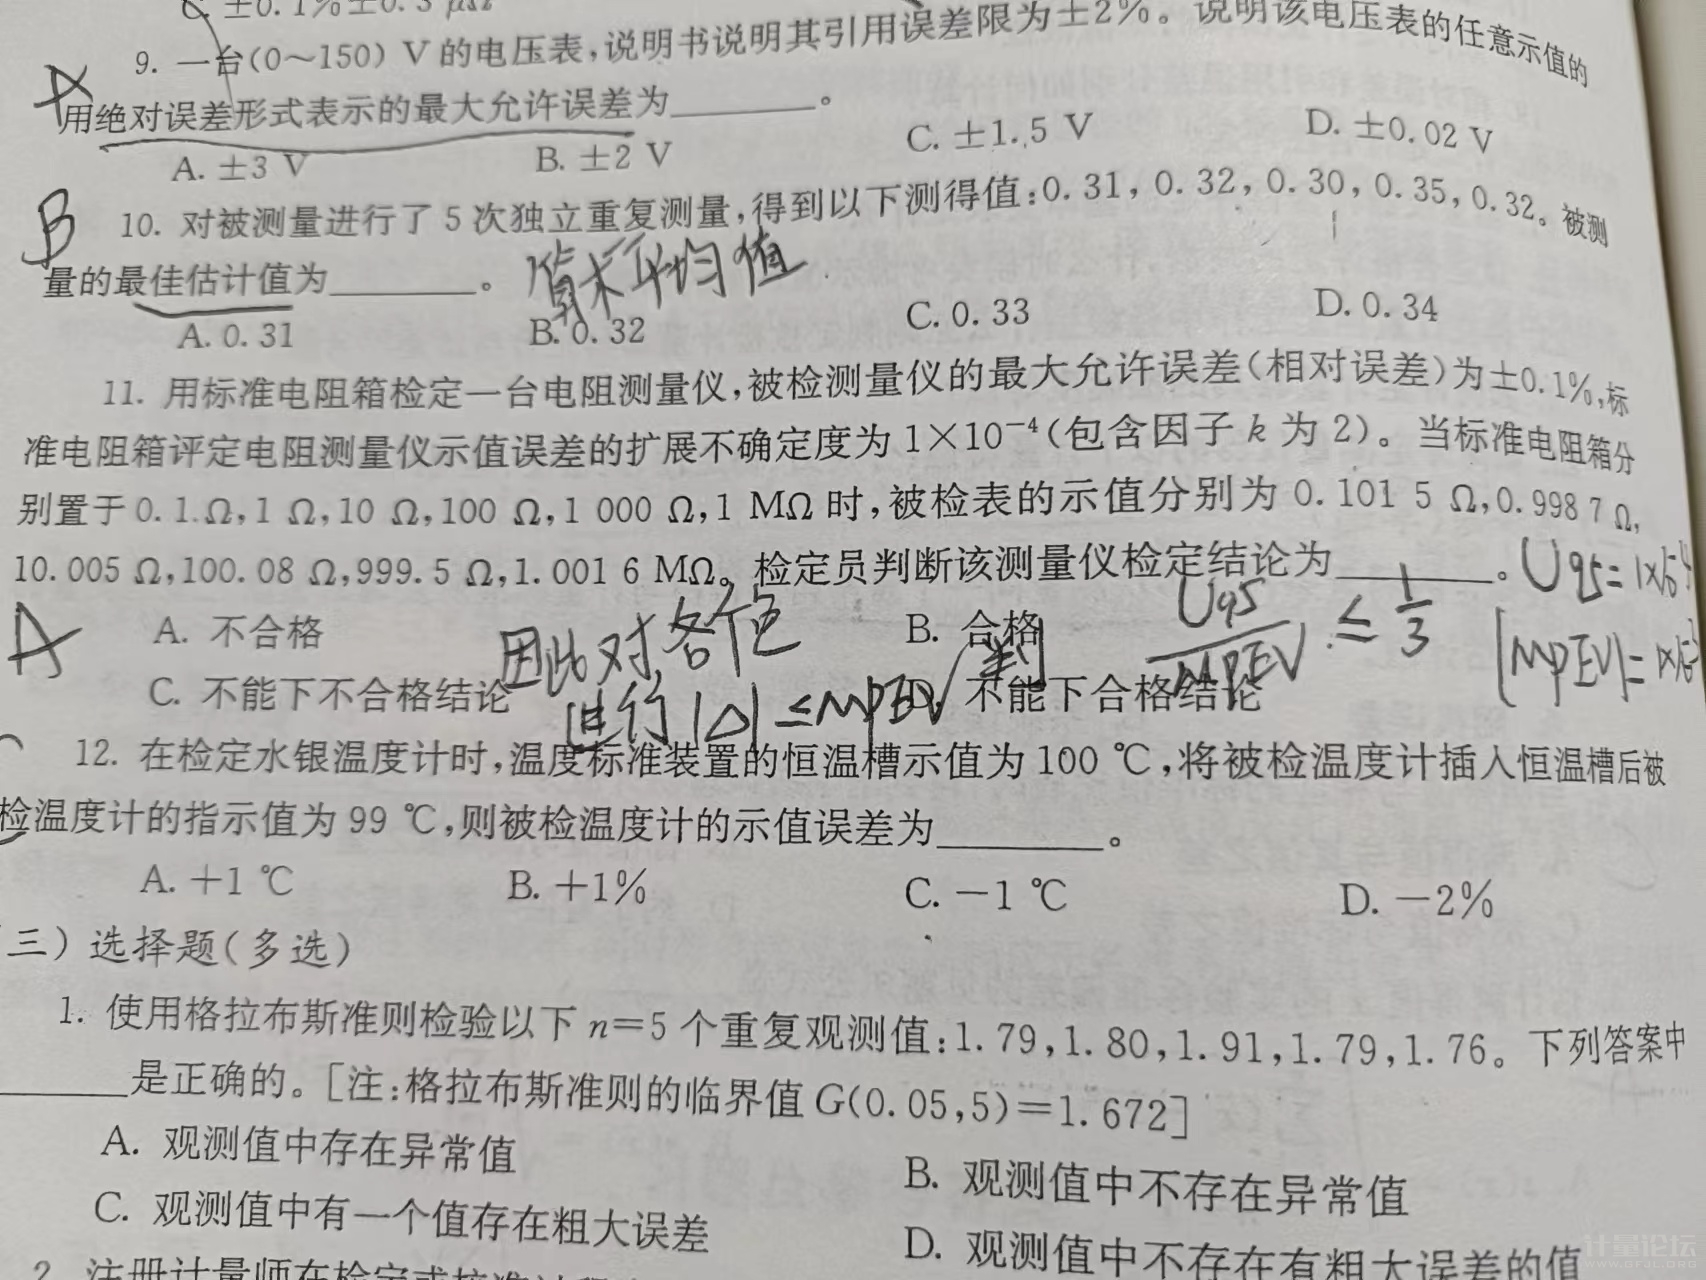 C. ±0.1%±0.3 μΩ
9. 一台(0～150) V 的电压表,说明书说明其引用误差限为±2%。说明该电压表的任意示值的
A
用绝对误差形式表示的最大允许误差为________。
A. ±3 V B. ±2 V C. ±1.5 V D. ±0.02 V
B
10. 对被测量进行了 5 次独立重复测量,得到以下测得值:0.31, 0.32, 0.30, 0.35, 0.32。被测
量的最佳估计值为________。 算术平均值
A. 0.31 B. 0.32 C. 0.33 D. 0.34
11. 用标准电阻箱检定一台电阻测量仪,被检测量仪的最大允许误差(相对误差)为±0.1%,标
准电阻箱评定电阻测量仪示值误差的扩展不确定度为 1×10⁻⁴(包含因子 k 为 2)。当标准电阻箱分
别置于 0.1 Ω,1 Ω,10 Ω,100 Ω,1 000 Ω,1 MΩ 时,被检表的示值分别为 0.101 5 Ω,0.998 7 Ω,
10.005 Ω,100.08 Ω,999.5 Ω,1.001 6 MΩ。检定员判断该测量仪检定结论为________。 U95=1×10⁻⁴
A
A. 不合格 因此对各个 B. 合格 U95/MPEV ≤ 1/3 |MPEV|=1×10⁻³
C. 不能下不合格结论 进行|Δ|≤MPEV 判 D. 不能下合格结论
12. 在检定水银温度计时,温度标准装置的恒温槽示值为 100 ℃,将被检温度计插入恒温槽后被
检温度计的指示值为 99 ℃,则被检温度计的示值误差为________。
A. +1 ℃ B. +1% C. −1 ℃ D. −2%
三) 选择题(多选)
1. 使用格拉布斯准则检验以下 n=5 个重复观测值:1.79,1.80,1.91,1.79,1.76。下列答案中
________是正确的。[注:格拉布斯准则的临界值 G(0.05,5)=1.672]
A. 观测值中存在异常值 B. 观测值中不存在异常值
C. 观测值中有一个值存在粗大误差 D. 观测值中不存在有粗大误差的值
2. 注册计量师在检定或校准
计量论坛